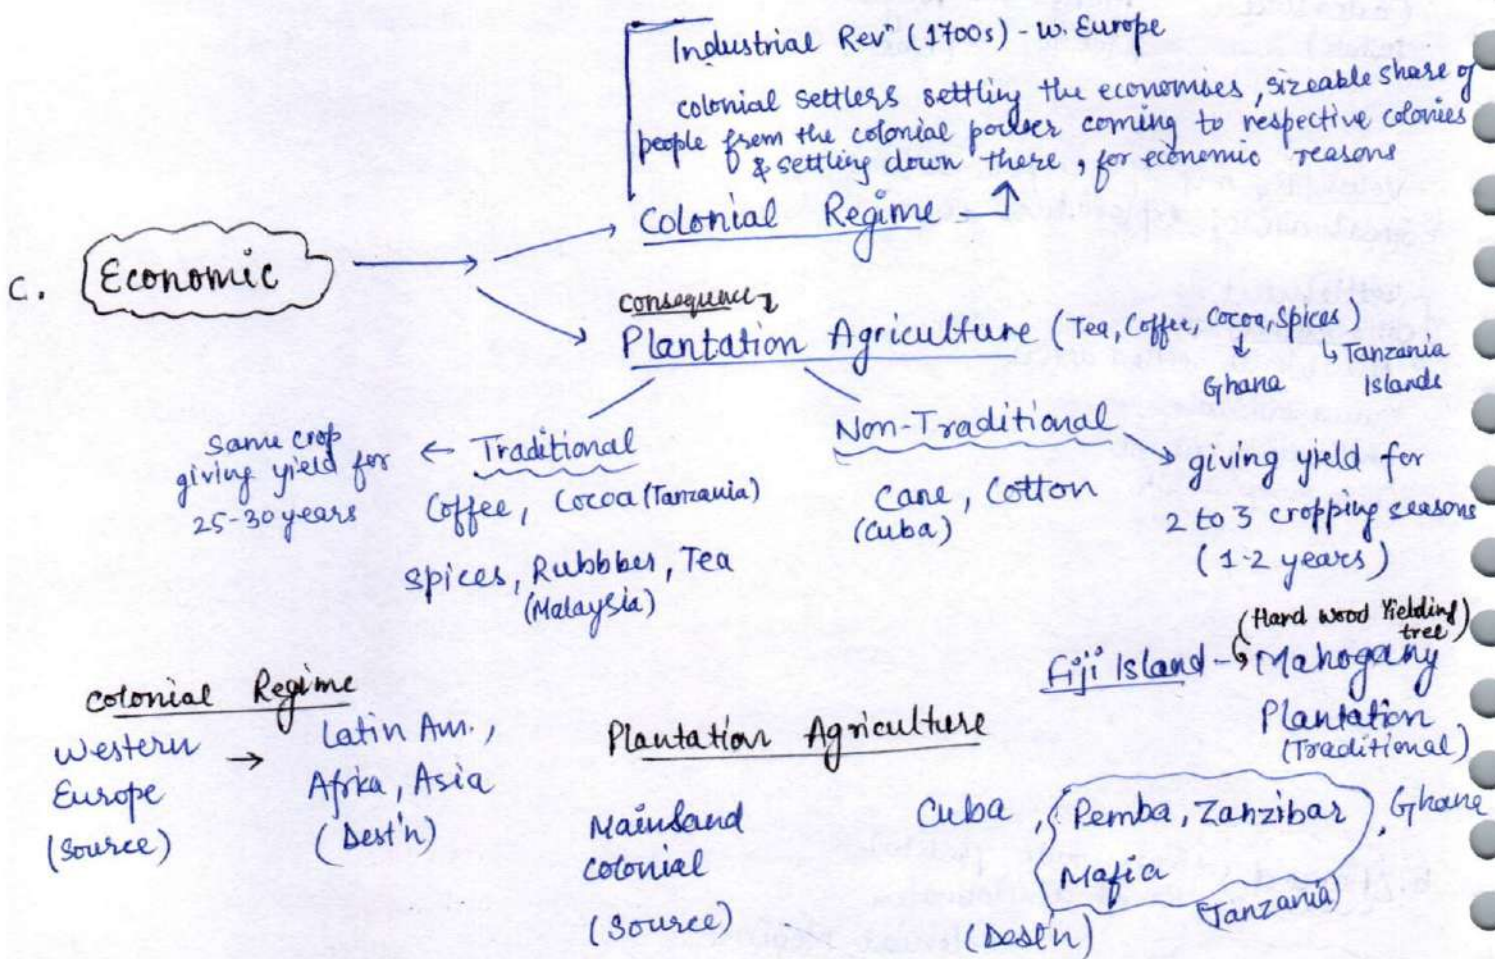 Industrial Revⁿ (1700s) - w. Europe
colonial settlers settling the economies, sizeable share of
people from the colonial power coming to respective colonies
& settling down there, for economic reasons
Colonial Regime
C. Economic
consequence
Plantation Agriculture (Tea, Coffee, Cocoa, Spices)
Ghana
Tanzania
Islands
Same crop
giving yield for
25-30 years
← Traditional
Coffee, Cocoa (Tanzania)
Spices, Rubbber, Tea
(Malaysia)
Non-Traditional
Cane, Cotton
(Cuba)
giving yield for
2 to 3 cropping seasons
(1-2 years)
(Hard wood Yielding
tree)
Fiji Island - Mahogany
Plantation
(Traditional)
Colonial Regime
Western
Europe
(Source)
→
Latin Am.,
Afrika, Asia
(Dest'n)
Plantation Agriculture
Mainland
colonial
(Source)
Cuba, Pemba, Zanzibar, Ghana
Mafia
(Tanzania)
(Dest'n)